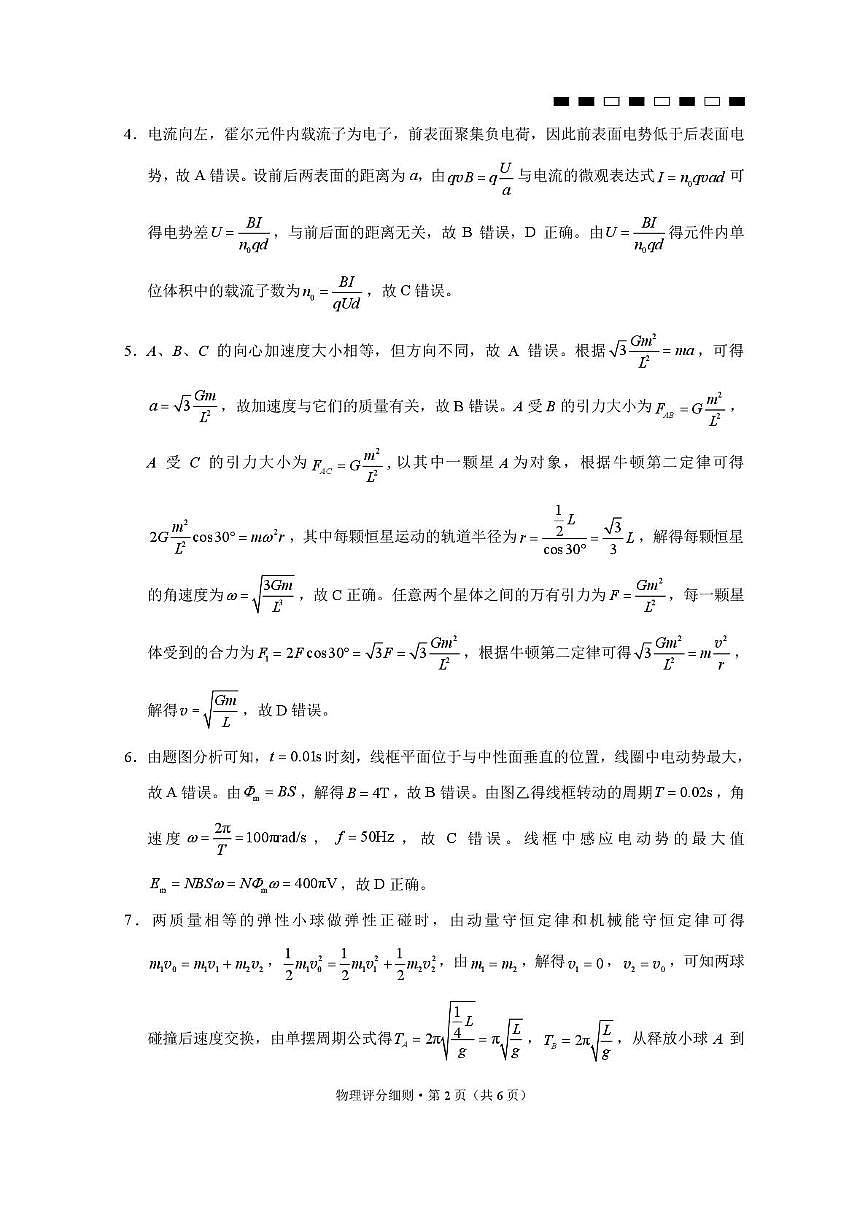 4．电流向左，霍尔元件内载流子为电子，前表面聚集负电荷，因此前表面电势低于后表面电
势，故 A 错误。设前后两表面的距离为 a，由 $qvB=q\frac{U}{a}$ 与电流的微观表达式 $I=n_0qvad$ 可
得电势差 $U=\frac{BI}{n_0qd}$，与前后面的距离无关，故 B 错误，D 正确。由 $U=\frac{BI}{n_0qd}$ 得元件内单
位体积中的载流子数为 $n_0=\frac{BI}{qUd}$，故 C 错误。
5．A、B、C 的向心加速度大小相等，但方向不同，故 A 错误。根据 $\sqrt{3}\frac{Gm^2}{L^2}=ma$，可得
$a=\sqrt{3}\frac{Gm}{L^2}$，故加速度与它们的质量有关，故 B 错误。A 受 B 的引力大小为 $F_{AB}=G\frac{m^2}{L^2}$，
A 受 C 的引力大小为 $F_{AC}=G\frac{m^2}{L^2}$，以其中一颗星 A 为对象，根据牛顿第二定律可得
$2G\frac{m^2}{L^2}\cos30°=m\omega^2r$，其中每颗恒星运动的轨道半径为 $r=\frac{\frac{1}{2}L}{\cos30°}=\frac{\sqrt{3}}{3}L$，解得每颗恒星
的角速度为 $\omega=\sqrt{\frac{3Gm}{L^3}}$，故 C 正确。任意两个星体之间的万有引力为 $F=\frac{Gm^2}{L^2}$，每一颗星
体受到的合力为 $F_1=2F\cos30°=\sqrt{3}F=\sqrt{3}\frac{Gm^2}{L^2}$，根据牛顿第二定律可得 $\sqrt{3}\frac{Gm^2}{L^2}=m\frac{v^2}{r}$，
解得 $v=\sqrt{\frac{Gm}{L}}$，故 D 错误。
6．由题图分析可知，$t=0.01s$ 时刻，线框平面位于与中性面垂直的位置，线圈中电动势最大，
故 A 错误。由 $\Phi_m=BS$，解得 $B=4T$，故 B 错误。由图乙得线框转动的周期 $T=0.02s$，角
速度 $\omega=\frac{2\pi}{T}=100\pi rad/s$，$f=50Hz$，故 C 错误。线框中感应电动势的最大值
$E_m=NBS\omega=N\Phi_m\omega=400\pi V$，故 D 正确。
7．两质量相等的弹性小球做弹性正碰时，由动量守恒定律和机械能守恒定律可得
$m_1v_0=m_1v_1+m_2v_2$，$\frac{1}{2}m_1v_0^2=\frac{1}{2}m_1v_1^2+\frac{1}{2}m_2v_2^2$，由 $m_1=m_2$，解得 $v_1=0$，$v_2=v_0$，可知两球
碰撞后速度交换，由单摆周期公式得 $T_A=2\pi\sqrt{\frac{\frac{1}{4}L}{g}}=\pi\sqrt{\frac{L}{g}}$，$T_B=2\pi\sqrt{\frac{L}{g}}$，从释放小球 A 到
物理评分细则·第 2 页（共 6 页）